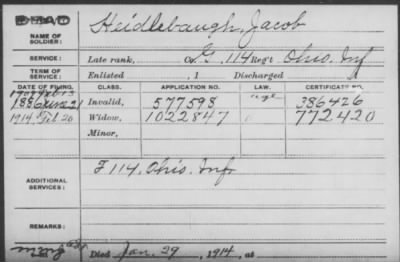 DEAD
NAME OF SOLDIER: Heidlebaugh, Jacob
SERVICE: Late rank, Co. G, 114 Reg't Ohio Inf
TERM OF SERVICE: Enlisted , 1 Discharged , 1
DATE OF FILING. CLASS. APPLICATION NO. LAW. CERTIFICATE NO.
1886 21 Invalid, 577598 386426
1914, Feb 20 Widow, 1022847 772420
Minor,
ADDITIONAL SERVICES: F 114, Ohio Inf
REMARKS:
Died Jan. 29, 1914, at